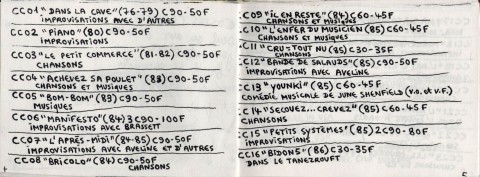 CC01 "DANS LA CAVE" (76-79) C90-50F
IMPROVISATIONS AVEC D'AUTRES
CC02 "PIANO" (80) C90-50F
IMPROVISATIONS
CC03 "LE PETIT COMMERCE" (81-82) C90-50F
CHANSONS
CC04 "ACHEVEZ SA POULET" (83) C90-50F
CHANSONS ET MUSIQUES
CC05 "BOM-BOM" (83) C90-50F
MUSIQUES
CC06 "MANIFESTO" (84) 3C90-100F
IMPROVISATIONS AVEC BRASSETT
CC07 "L'APRÈS-MIDI" (84-85) C90-50F
IMPROVISATIONS AVEC AVELINE ET D'AUTRES
CC08 "BRICOLO" (84) C90-50F
CHANSONS
4
CC09 "IL EN RESTE" (84) C60-45F
CHANSONS ET MUSIQUES
C.10 "L'ENFER DU MUSICIEN (85) C60-45F
CHANSONS ET MUSIQUES
C11 "CRU=TOUT NU (85) C30-35F
CHANSONS
C.12 "BANDE DE SALAUDS" (85) C90-50F
IMPROVISATIONS AVEC AVELINE
C.13 "YOUNKI" (85) C60-45F
COMÉDIE MUSICALE DE JUNE SHENFIELD (V.O. et V.F.)
C.14 "SECOUEZ...CREVEZ" (85) C60-45F
CHANSONS
C.15 "PETITS SYSTÈMES" (85) 2C90-80F
IMPROVISATIONS
CC16 "BIDONS" (86) C30-35F
DANS LE TANEZROUFT
5